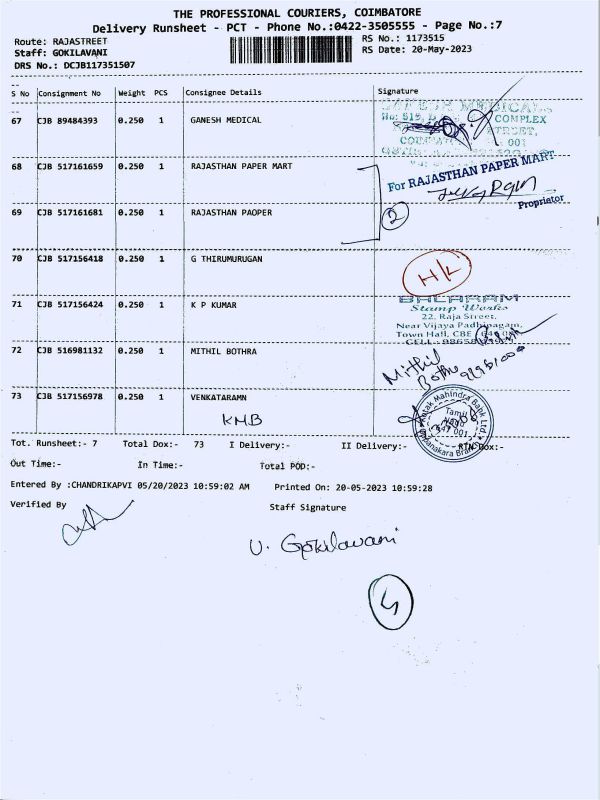 THE PROFESSIONAL COURIERS, COIMBATORE
Delivery Runsheet - PCT - Phone No.:0422-3505555 - Page No.:7
Route: RAJASTREET
RS No.: 1173515
Staff: GOKILAVANI
RS Date: 20-May-2023
DRS No.: DCJB117351507
S No Consignment No Weight PCS Consignee Details Signature
67 CJB 89484393 0.250 1 GANESH MEDICAL
MEDICAL
COMPLEX
STREET,
001
68 CJB 517161659 0.250 1 RAJASTHAN PAPER MART
For RAJASTHAN PAPER MART
Proprietor
69 CJB 517161681 0.250 1 RAJASTHAN PAOPER
2
70 CJB 517156418 0.250 1 G THIRUMURUGAN
H/L
71 CJB 517156424 0.250 1 K P KUMAR
BALARAM
Stamp Works
22, Raja Street,
Near Vijaya Padhipagam,
Town Hall, CBE
CELL:
72 CJB 516981132 0.250 1 MITHIL BOTHRA
Mithil
73 CJB 517156978 0.250 1 VENKATARAMN
KMB
Kotak Mahindra Bank Ltd.
Tamil
Nadu
641 001
Tot. Runsheet:- 7 Total Dox:- 73 I Delivery:- II Delivery:- RTN Dox:-
Out Time:- In Time:- Total POD:-
Entered By :CHANDRIKAPVI 05/20/2023 10:59:02 AM Printed On: 20-05-2023 10:59:28
Verified By Staff Signature
U. Gokilavani